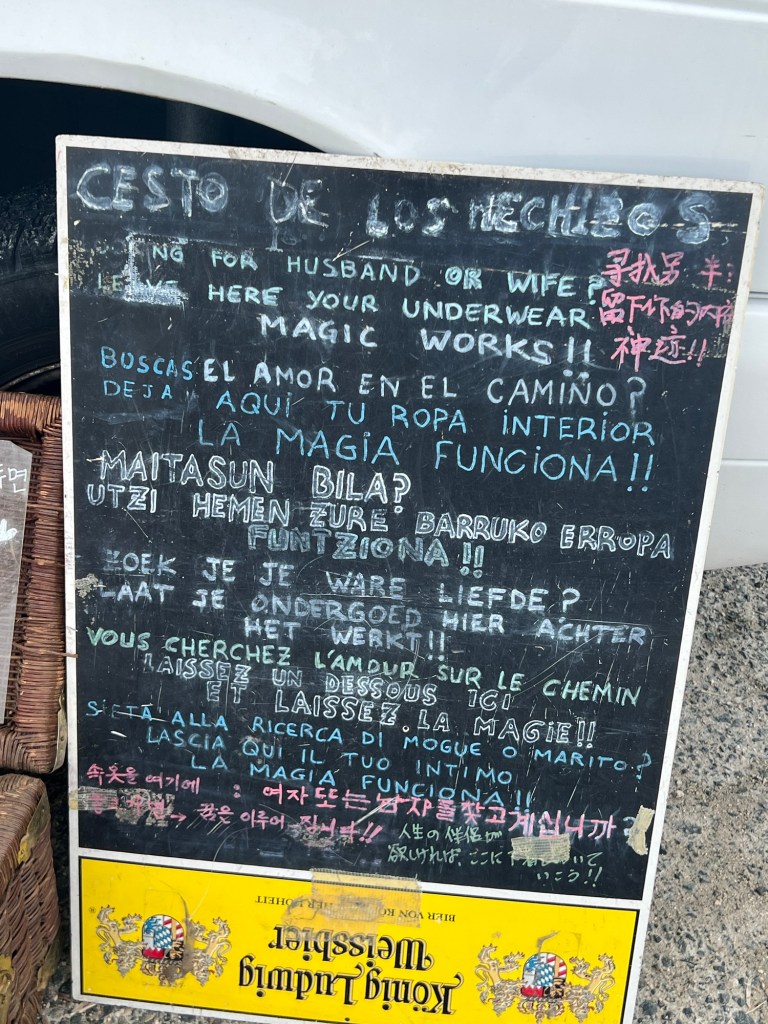 CESTO DE LOS HECHIZOS
NG FOR HUSBAND OR WIFE?
HERE YOUR UNDERWEAR
MAGIC WORKS!!
寻找另 半:
留下你的内
神迹!!
BUSCAS EL AMOR EN EL CAMIÑO?
DEJA AQUÍ TU ROPA INTERIOR
LA MAGIA FUNCIONA!!
MAITASUN BILA?
UTZI HEMEN ZURE BARRUKO ERROPA
FUNTZIONA!!
ZOEK JE JE WARE LIEFDE?
LAAT JE ONDERGOED HIER ACHTER
HET WERKT!!
VOUS CHERCHEZ L'AMOUR SUR LE CHEMIN
LAISSEZ UN DESSOUS ICI
ET LAISSEZ LA MAGIE!!
SIETA ALLA RICERCA DI MOGUE O MARITO?
LASCIA QUI IL TUO INTIMO
LA MAGIA FUNCIONA!!
속옷을 여기에 : 여자 또는 남자를 찾고계십니까?
→ 꿈은 이루어 집니다!!
人生の伴侶が
欲しければ、ここに いて
いこう!!
BIER VON KÖ HER HOHEIT
König Ludwig
Weissbier